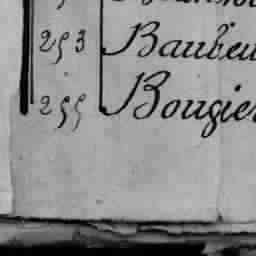 253 Baubeu
255 Bougier